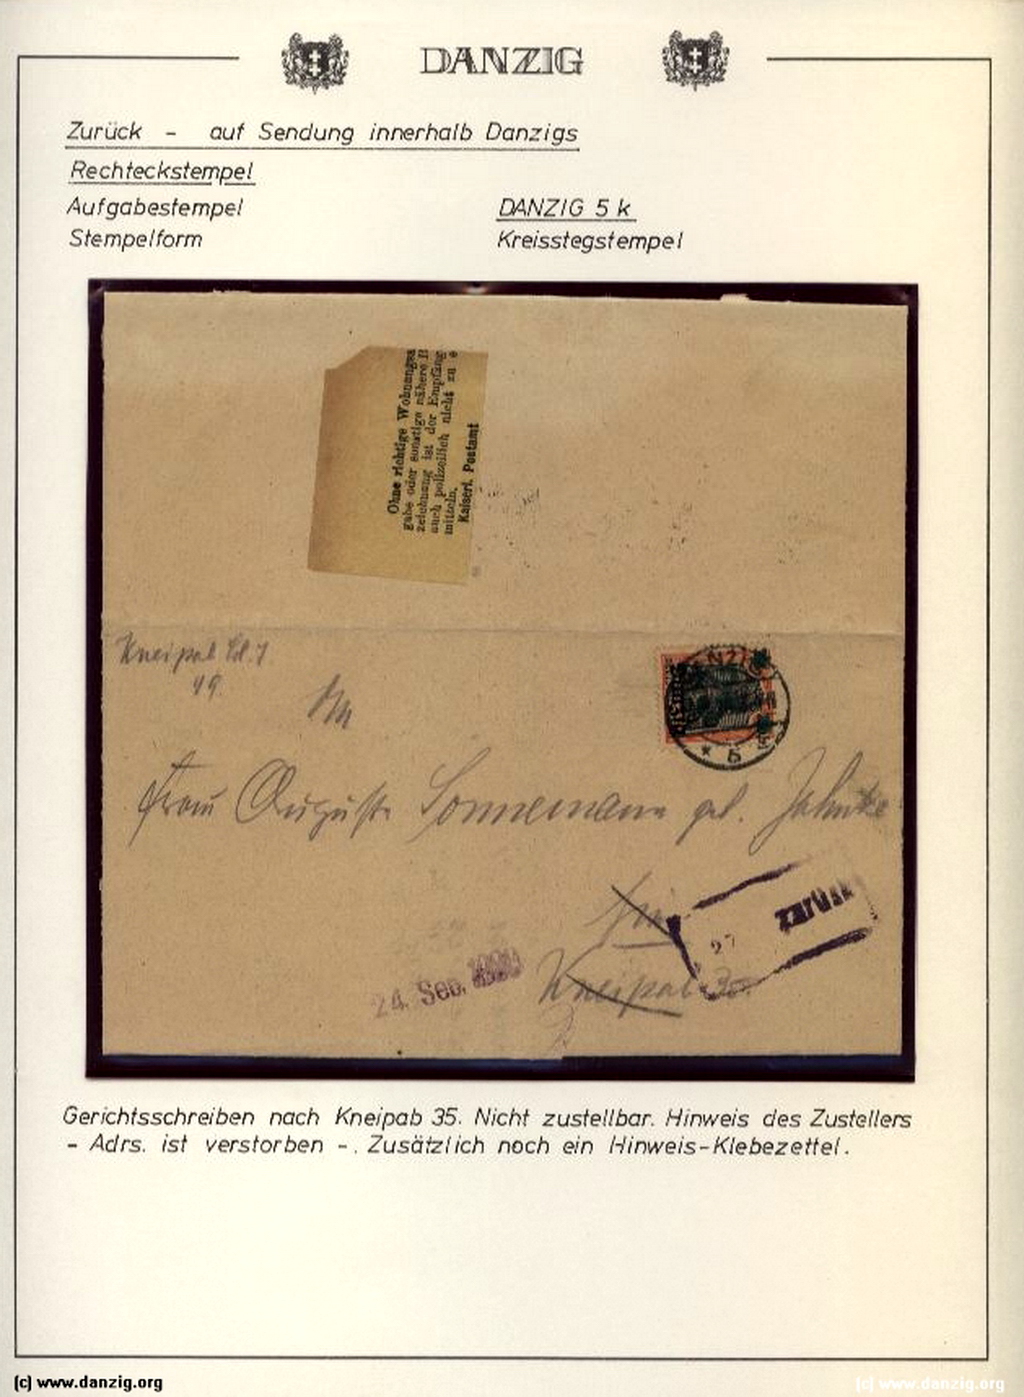 DANZIG
Zurück - auf Sendung innerhalb Danzigs
Rechteckstempel
Aufgabestempel DANZIG 5 k
Stempelform Kreisstegstempel
Ohne richtige Wohnungsa
gabe oder sonstige nähere B
zeichnung ist der Empfäng
auch polizeilich nicht zu e
mitteln.
Kaiserl. Postamt
Kneipab
49.
An
NZIG
* 5
Frau Auguste Sonnemann geb. Jahnke
Zurück
27
24. Sep. 1920
Kneipab 35.
Gerichtsschreiben nach Kneipab 35. Nicht zustellbar. Hinweis des Zustellers
- Adrs. ist verstorben -. Zusätzlich noch ein Hinweis-Klebezettel.
(c) www.danzig.org (c) www.danzig.org